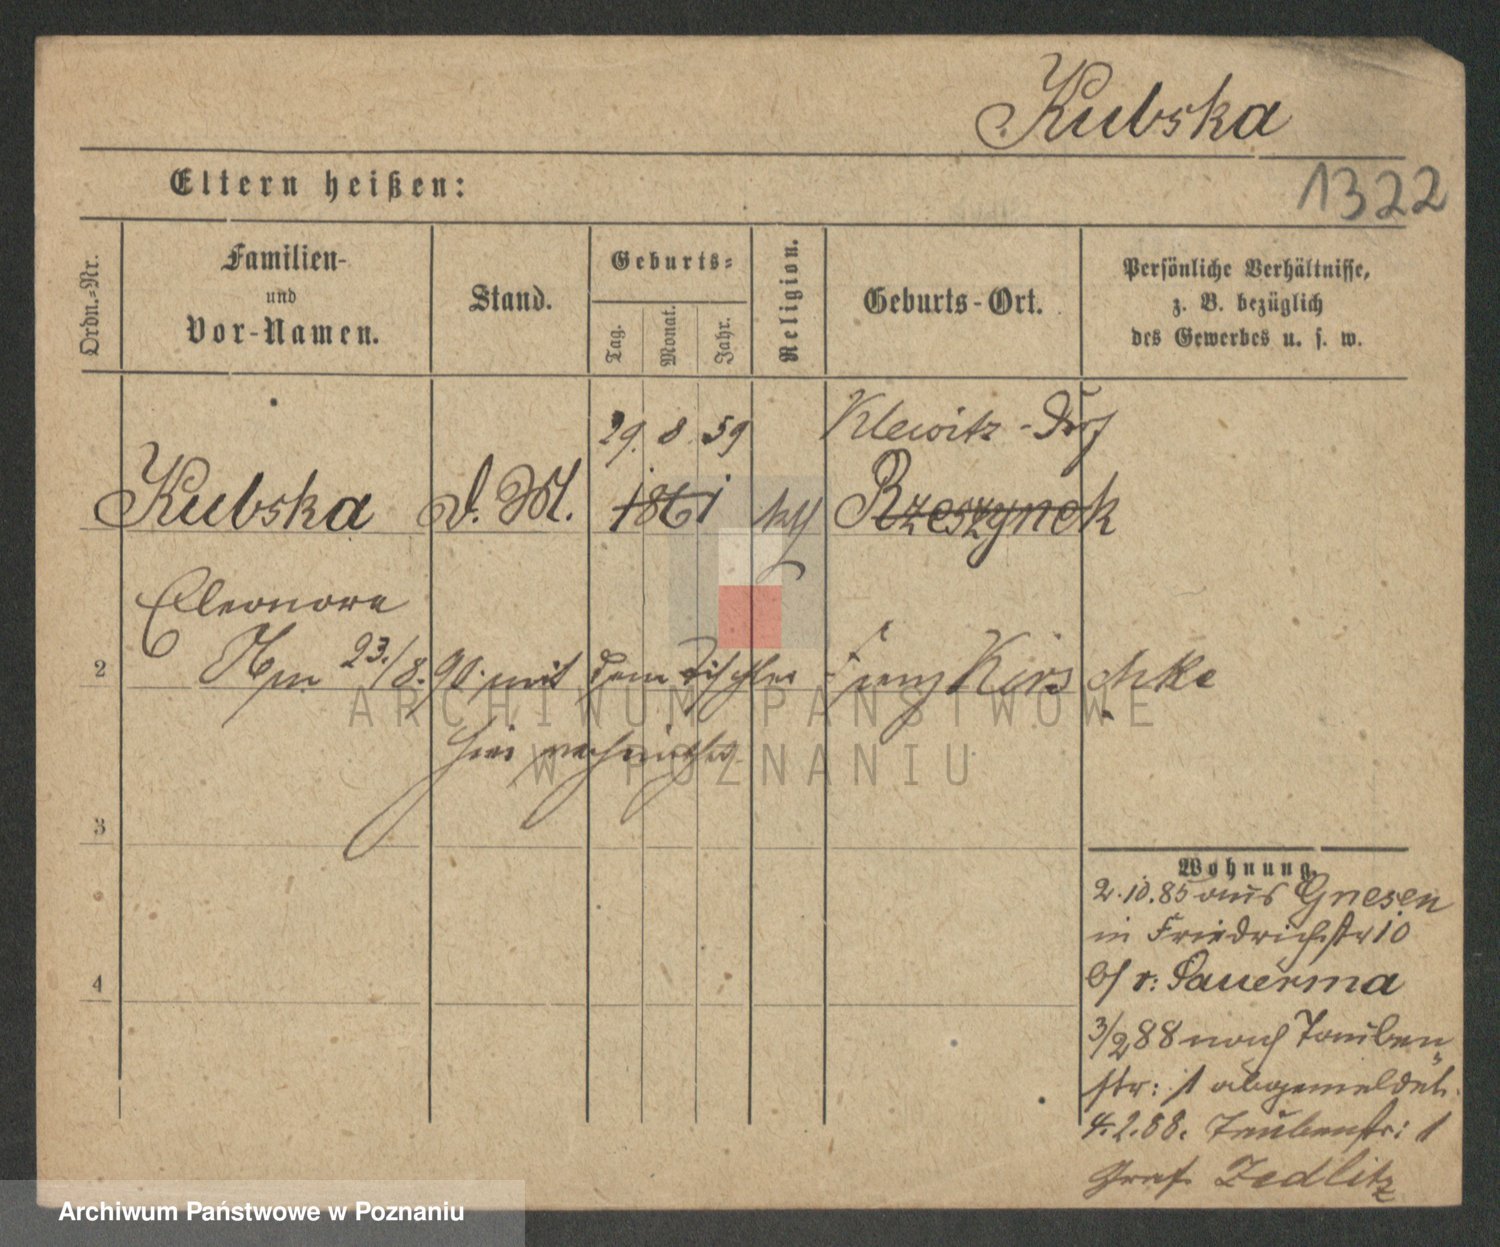 Kubska
1322
Eltern heißen:
Ordn.-Nr.
Familien-
und
Vor-Namen.
Stand.
Geburts-
Tag.
Monat.
Jahr.
Religion.
Geburts-Ort.
Persönliche Verhältnisse,
z. B. bezüglich
des Gewerbes u. s. w.
29. 8 59 Klewitz-Dorf
Kubska d. M. 1861 kth Rzeszynek
Eleonore
2
Am 23./8. 90. mit dem Tischler Kirschke
hier verheirathet
3
4
Wohnung.
2.10.85 aus Gnesen
in Friedrichstr 10
b/ v: Sauerma
3/2 88 nach Tauben
str: 1 abgemeldet.
4.2.88. Taubenstr: 1
Graf Zedlitz
ARCHIWUM PAŃSTWOWE
W POZNANIU
Archiwum Państwowe w Poznaniu